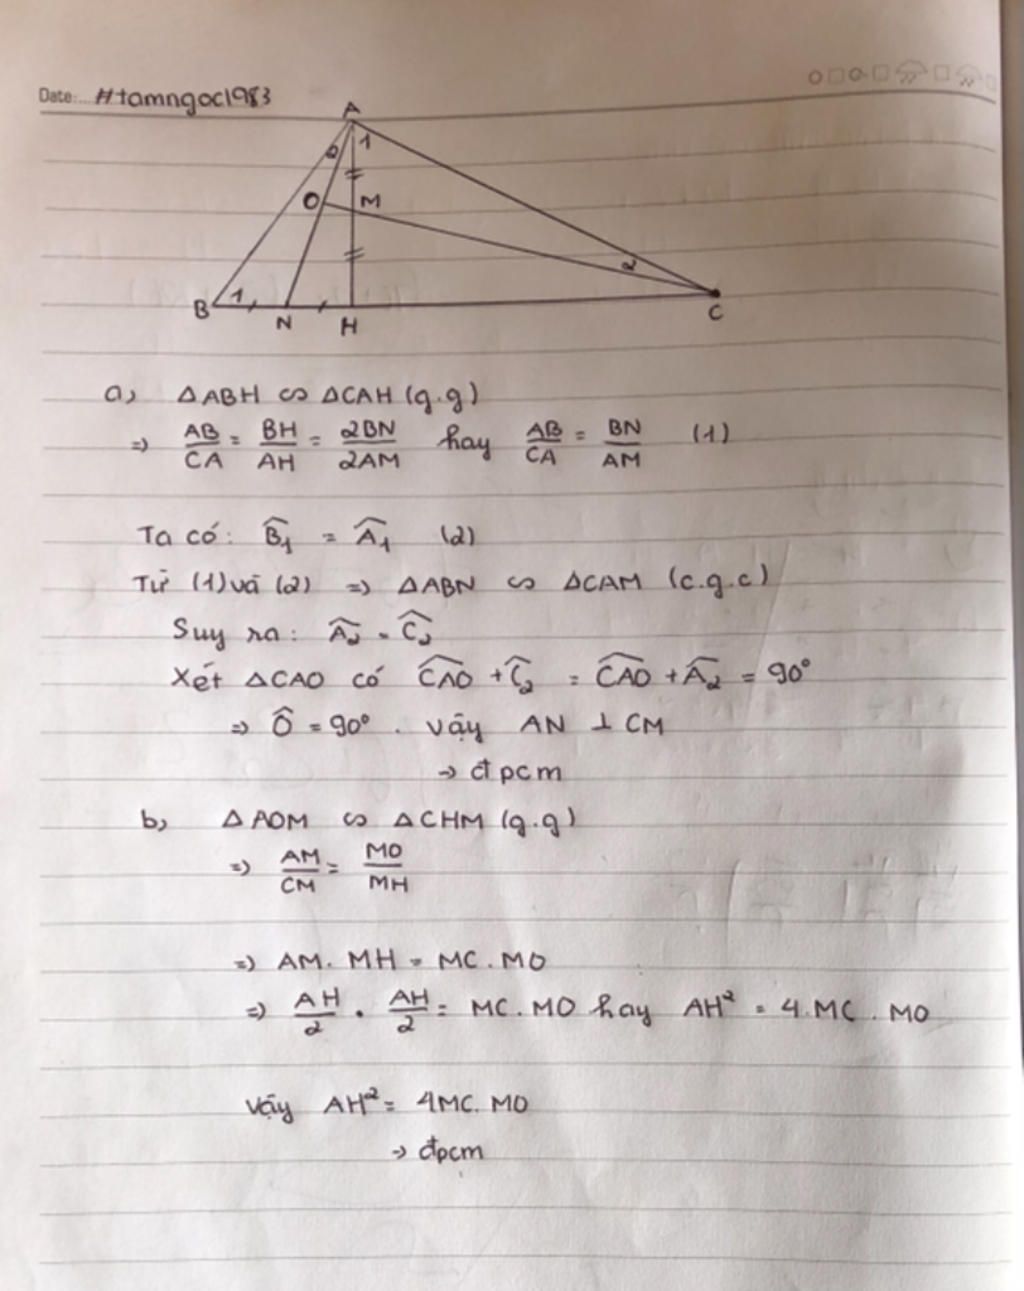 Date:... #tamngoc1983
A
2 1
O M
2
B 1 N H C
a, ΔABH ∽ ΔCAH (g.g)
=> AB/CA = BH/AH = 2BN/2AM hay AB/CA = BN/AM (1)
Ta có: B̂₁ = Â₁ (2)
Từ (1) và (2) => ΔABN ∽ ΔCAM (c.g.c)
Suy ra: Â₂ = Ĉ₂
Xét ΔCAO có \widehat{CAO} + Ĉ₂ = \widehat{CAO} + Â₂ = 90°
=> Ô = 90°. Vậy AN ⊥ CM
→ đpcm
b, ΔAOM ∽ ΔCHM (g.g)
=> AM/CM = MO/MH
=> AM. MH = MC. MO
=> AH/2 . AH/2 = MC. MO hay AH² = 4. MC . MO
Vậy AH² = 4MC. MO
→ đpcm